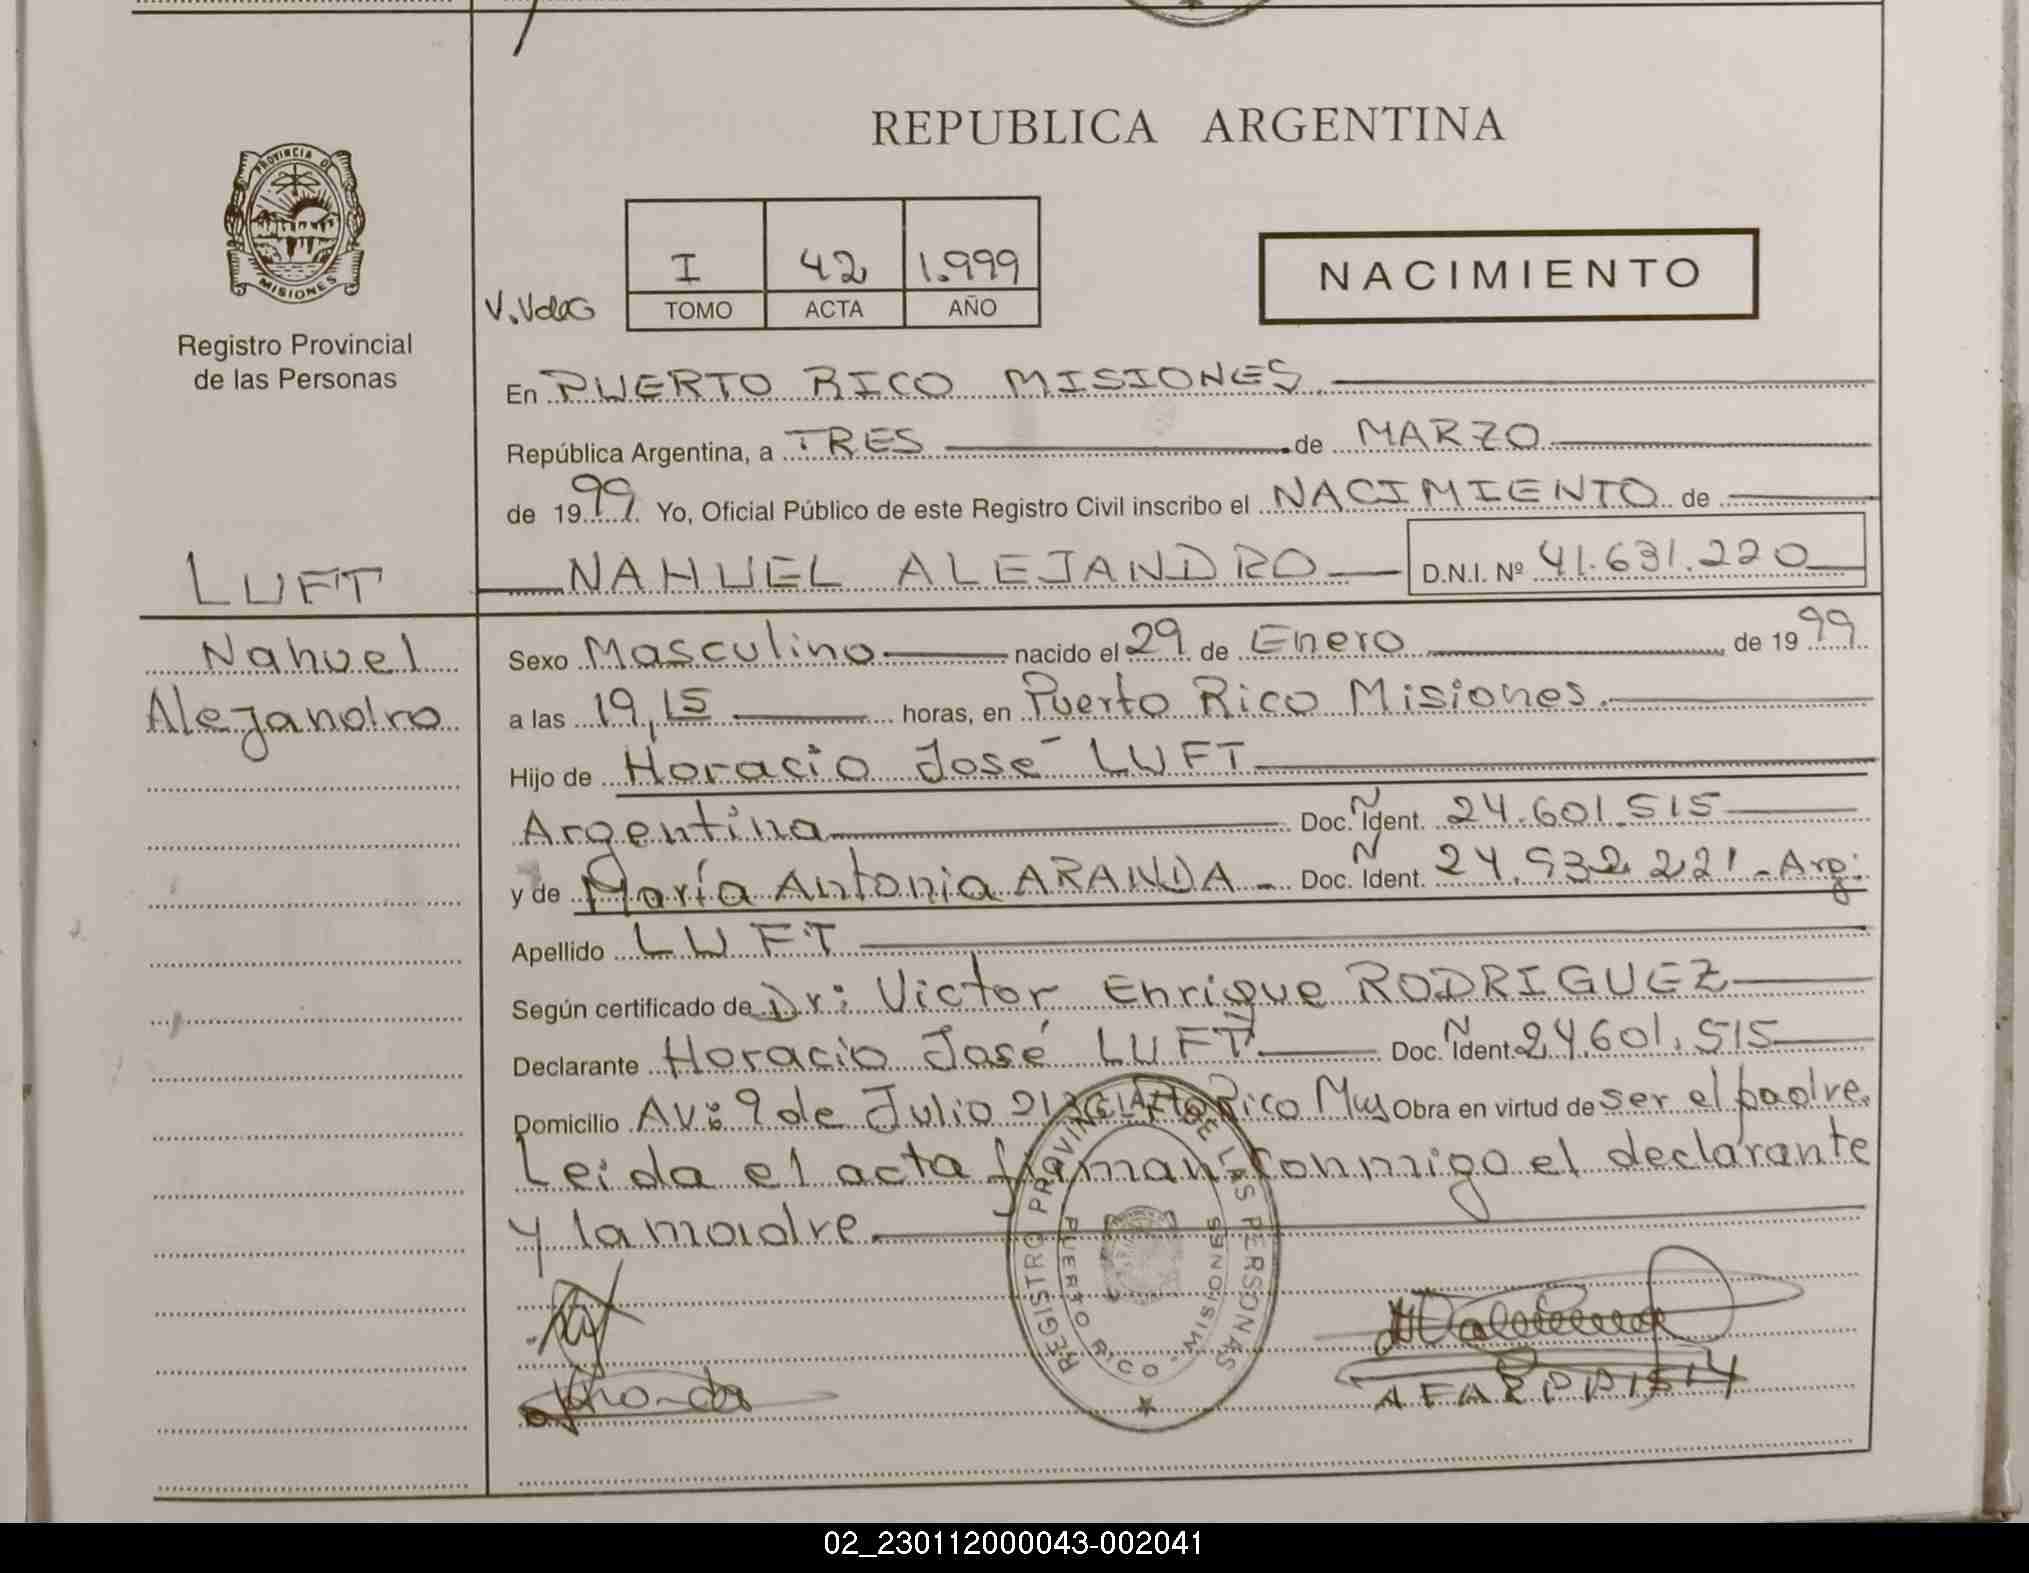 REPUBLICA ARGENTINA
PROVINCIA DE
MISIONES
Registro Provincial
de las Personas
I 42 1.999
TOMO ACTA AÑO
NACIMIENTO
En PUERTO RICO MISIONES.
República Argentina, a TRES de MARZO
de 1999. Yo, Oficial Público de este Registro Civil inscribo el NACIMIENTO de
LUFT
NAHUEL ALEJANDRO D.N.I. Nº 41.631.220
Nahuel
Alejandro
Sexo Masculino nacido el 29 de Enero de 1999
a las 19,15 horas, en Puerto Rico Misiones.
Hijo de Horacio José LUFT
Argentina Doc. Ident. Nº 24.601.515
y de María Antonia ARANDA - Doc. Ident. Nº 24.932.221 - Arg:
Apellido LUFT
Según certificado de Dr: Victor Enrique RODRIGUEZ
Declarante Horacio José LUFT Doc. Ident. Nº 24.601.515
Domicilio Av: 9 de Julio Rico Obra en virtud de ser el padre.
Leida el acta firman conmigo el declarante
y la madre
REGISTRO PROVINCIAL DE LAS PERSONAS
PUERTO RICO - MISIONES
02_230112000043-002041